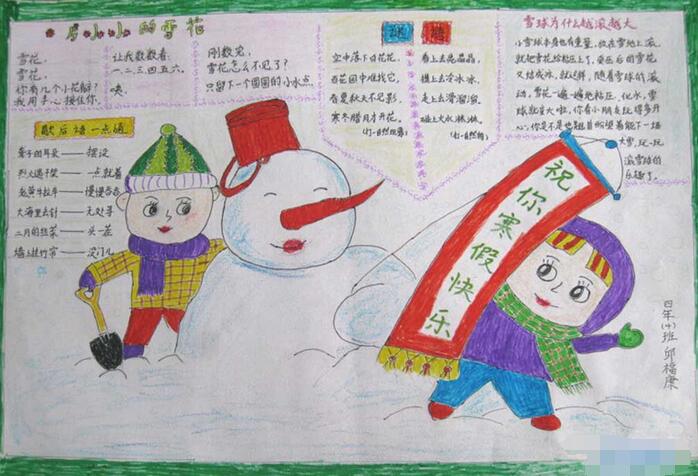 一片小小的雪花
雪花,
雪花,
你有几个小花瓣?
我用手心接住你,
让我数数看:
一、二、三、四、五、六。
咦,
刚数完,
雪花怎么不见了?
只留下一个圆圆的小水点。
谜语
空中落下白花花,
百花园中难找它,
春夏秋天不见影,
寒冬腊月才开花。
(打一自然现象)
看上去亮晶晶,
摸上去冷冰冰,
走上去滑溜溜,
碰上大火
(打一自然物)
雪球为什么越滚越大
小雪球本身也有重量,放在雪地上滚,
就把雪花给粘压上了,
又结成冰,就这样,随着雪球的滚
动,雪花一遍一遍地粘压,化水,雪
球就变大啦,你看小朋友玩得多开
心,你是不是也翘首盼望着能下一场
大雪,玩一玩
滚雪球的
乐趣了。
歇后语一点通
聋子的耳朵——摆设
烈火遇干柴——一点就着
老黄牛拉车——慢慢吞吞
大海里去针——无处寻
二月的韭菜——头一茬
墙上挂竹帘——没门儿
祝你寒假快乐
四年(4)班 邱福康